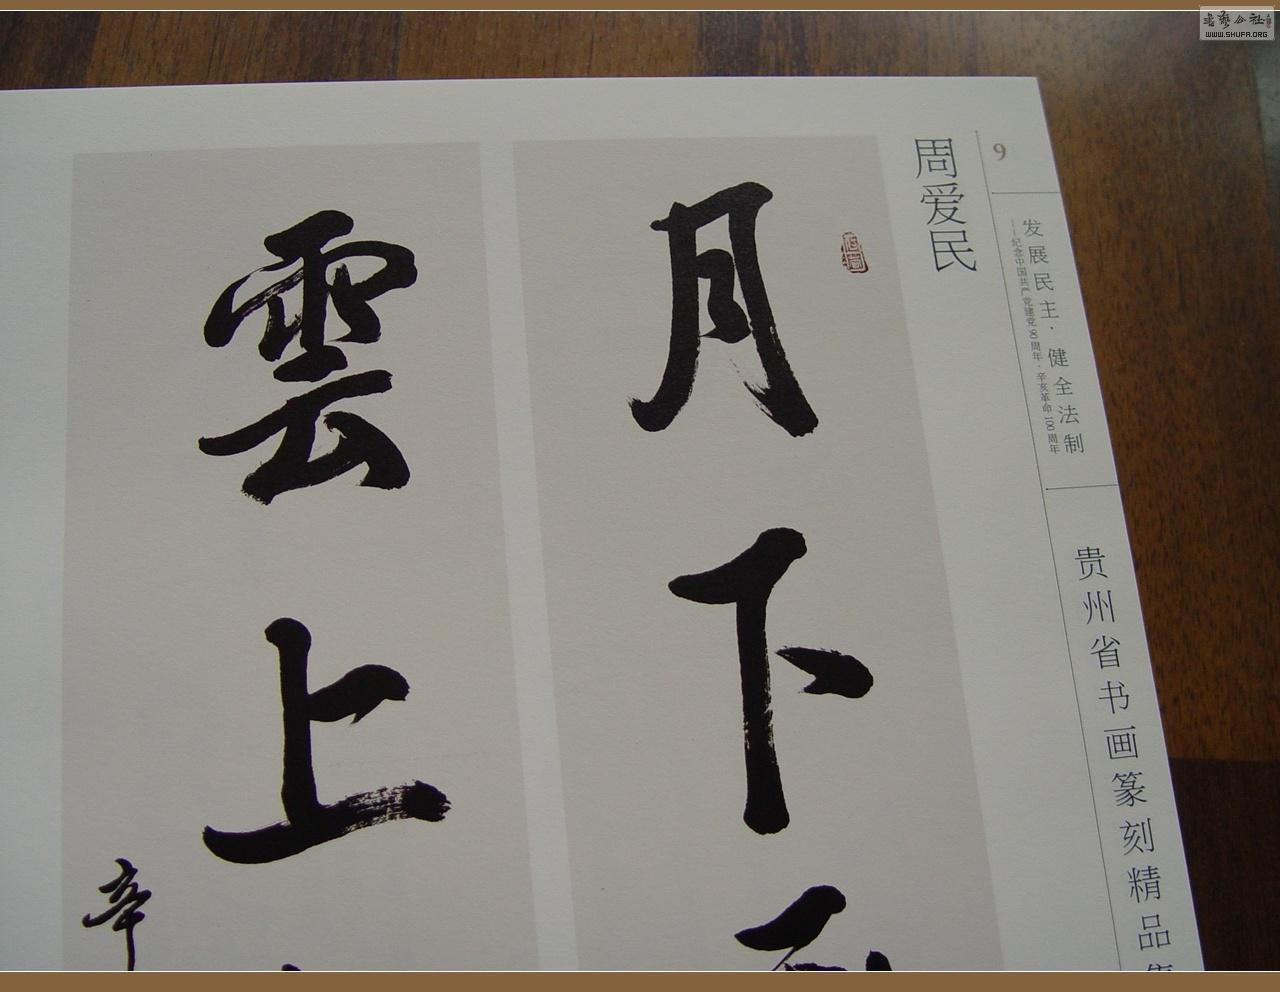 書藝公社
WWW.SHUFA.ORG
9
发展民主·健全法制
——纪念中国共产党建党90周年·辛亥革命100周年
贵州省书画篆刻精品集
周爱民
月下
雲上
辛